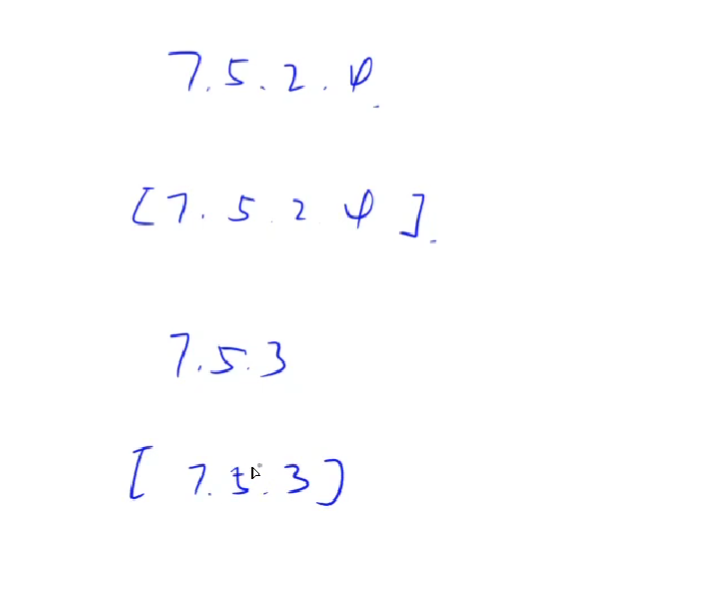 7.5.2.φ.
[7.5.2φ].
7.5.3
[7.5.3)